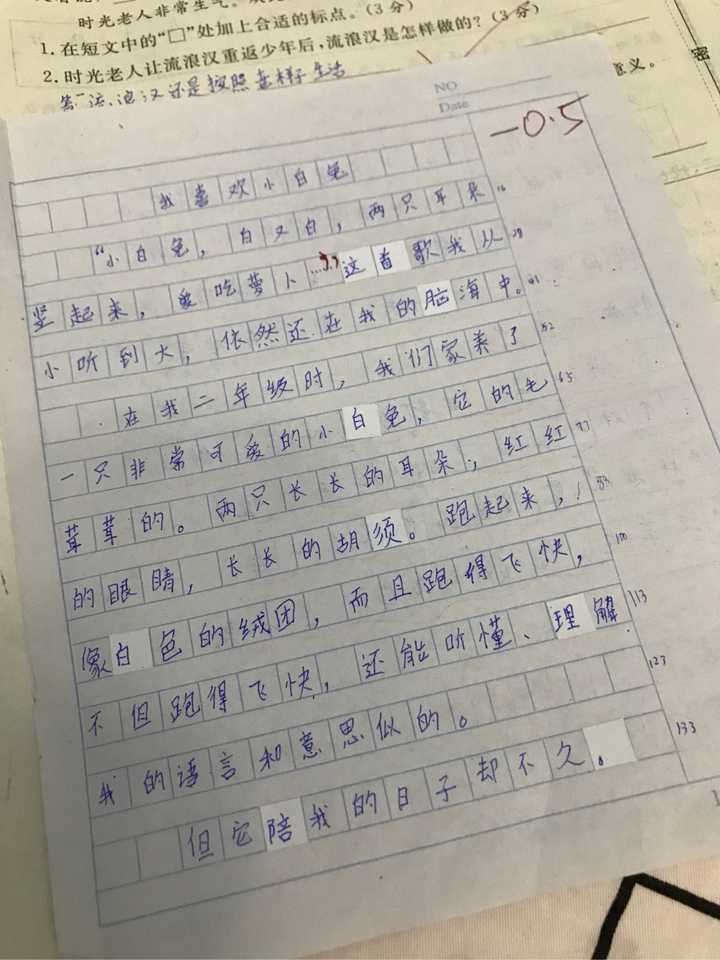 时光老人非常生气。
1.在短文中的“□”处加上合适的标点。(3分)
2.时光老人让流浪汉重返少年后,流浪汉是怎样做的?(3分)
意义。
密
NO
Date
-0.5
我喜欢小白兔
“小白兔，白又白，两只耳朵
竖起来，爱吃萝卜…”这首歌我从
小听到大，依然还在我的脑海中。
在我二年级时，我们家养了
一只非常可爱的小白兔，它的毛
茸茸的。两只长长的耳朵，红红
的眼睛，长长的胡须。跑起来，
像白色的绒团，而且跑得飞快，
不但跑得飞快，还能听懂、理解
我的语言和意思似的。
但它陪我的日子却不久。